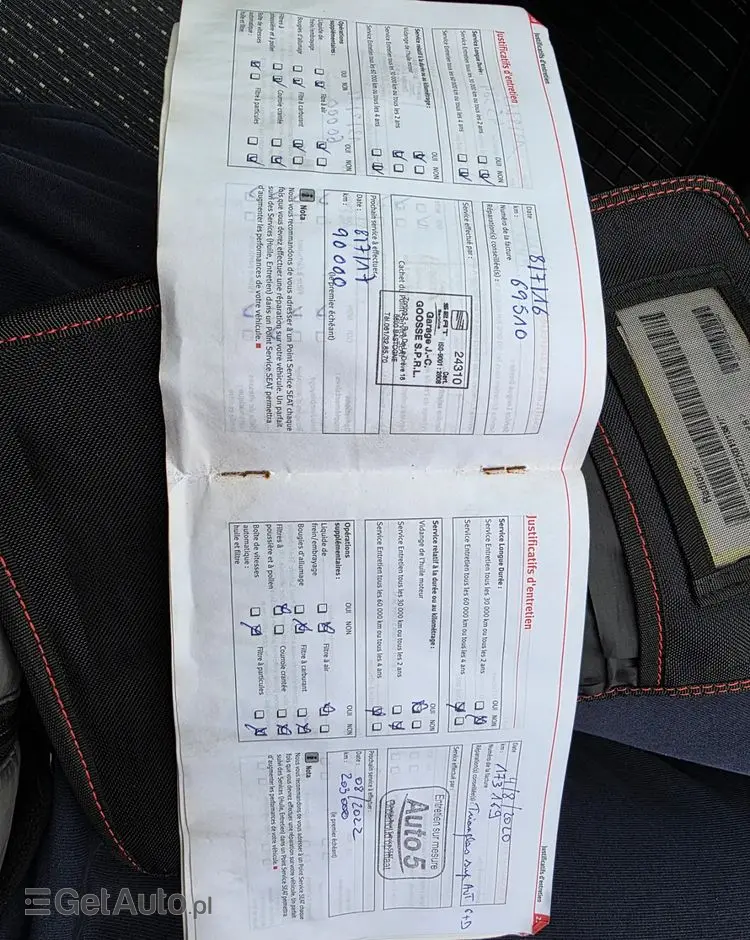 Justificatifs d'entretien
Justificatifs d'entretien
Service Longue Durée :
OUI NON
Service Entretien tous les 30 000 km ou tous les 2 ans
Service Entretien tous les 60 000 km ou tous les 4 ans
Service relatif à la durée ou au kilométrage :
OUI NON
Vidange de l'huile moteur
Service Entretien tous les 30 000 km ou tous les 2 ans
Service Entretien tous les 60 000 km ou tous les 4 ans
Opérations
supplémentaires :
OUI NON
OUI NON
Liquide de
frein/embrayage
Filtre à air
Bougies d'allumage
Filtre à carburant
Filtres à
poussière et à pollen
Courroie crantée
Boîte de vitesses
automatique :
huile et filtre
Filtre à particules
Date : 8/7/16
km : 69510
Numéro de la facture
Réparation(s) conseillée(s) :
Service effectué par :
24310
SEAT
Service
Cert.
ISO-9001 : 2008
Garage J.-C.
GOOSSE S.P.R.L.
6600 BASTOGNE
Cachet du
Prochain service à effectuer :
Date : 8/7/17
km : 90000
(le premier échéant)
Nota
Nous vous recommandons de vous adresser à un Point Service SEAT chaque
fois que vous devez effectuer une réparation sur votre véhicule. Un parfait
suivi des Services (Huile, Entretien) dans un Point Service SEAT permettra
d'augmenter les performances de votre véhicule.
Justificatifs d'entretien
Justificatifs d'entretien
Service Longue Durée :
OUI NON
Service Entretien tous les 30 000 km ou tous les 2 ans
Service Entretien tous les 60 000 km ou tous les 4 ans
Service relatif à la durée ou au kilométrage :
OUI NON
Vidange de l'huile moteur
Service Entretien tous les 30 000 km ou tous les 2 ans
Service Entretien tous les 60 000 km ou tous les 4 ans
Opérations
supplémentaires :
OUI NON
OUI NON
Liquide de
frein/embrayage
Filtre à air
Bougies d'allumage
Filtre à carburant
Filtres à
poussière et à pollen
Courroie crantée
Boîte de vitesses
automatique :
huile et filtre
Filtre à particules
Date : /8/2020
km : 173169
Numéro de la facture
Réparation(s) conseillée(s) :
Service effectué par :
Entretien sur mesure
Auto5
Prochain service à effectuer :
Date : 08/2022
km : 203000
(le premier échéant)
Nota
Nous vous recommandons de vous adresser à un Point Service SEAT chaque
fois que vous devez effectuer une réparation sur votre véhicule. Un parfait
suivi des Services (Huile, Entretien) dans un Point Service SEAT permettra
d'augmenter les performances de votre véhicule.
GetAuto.pl